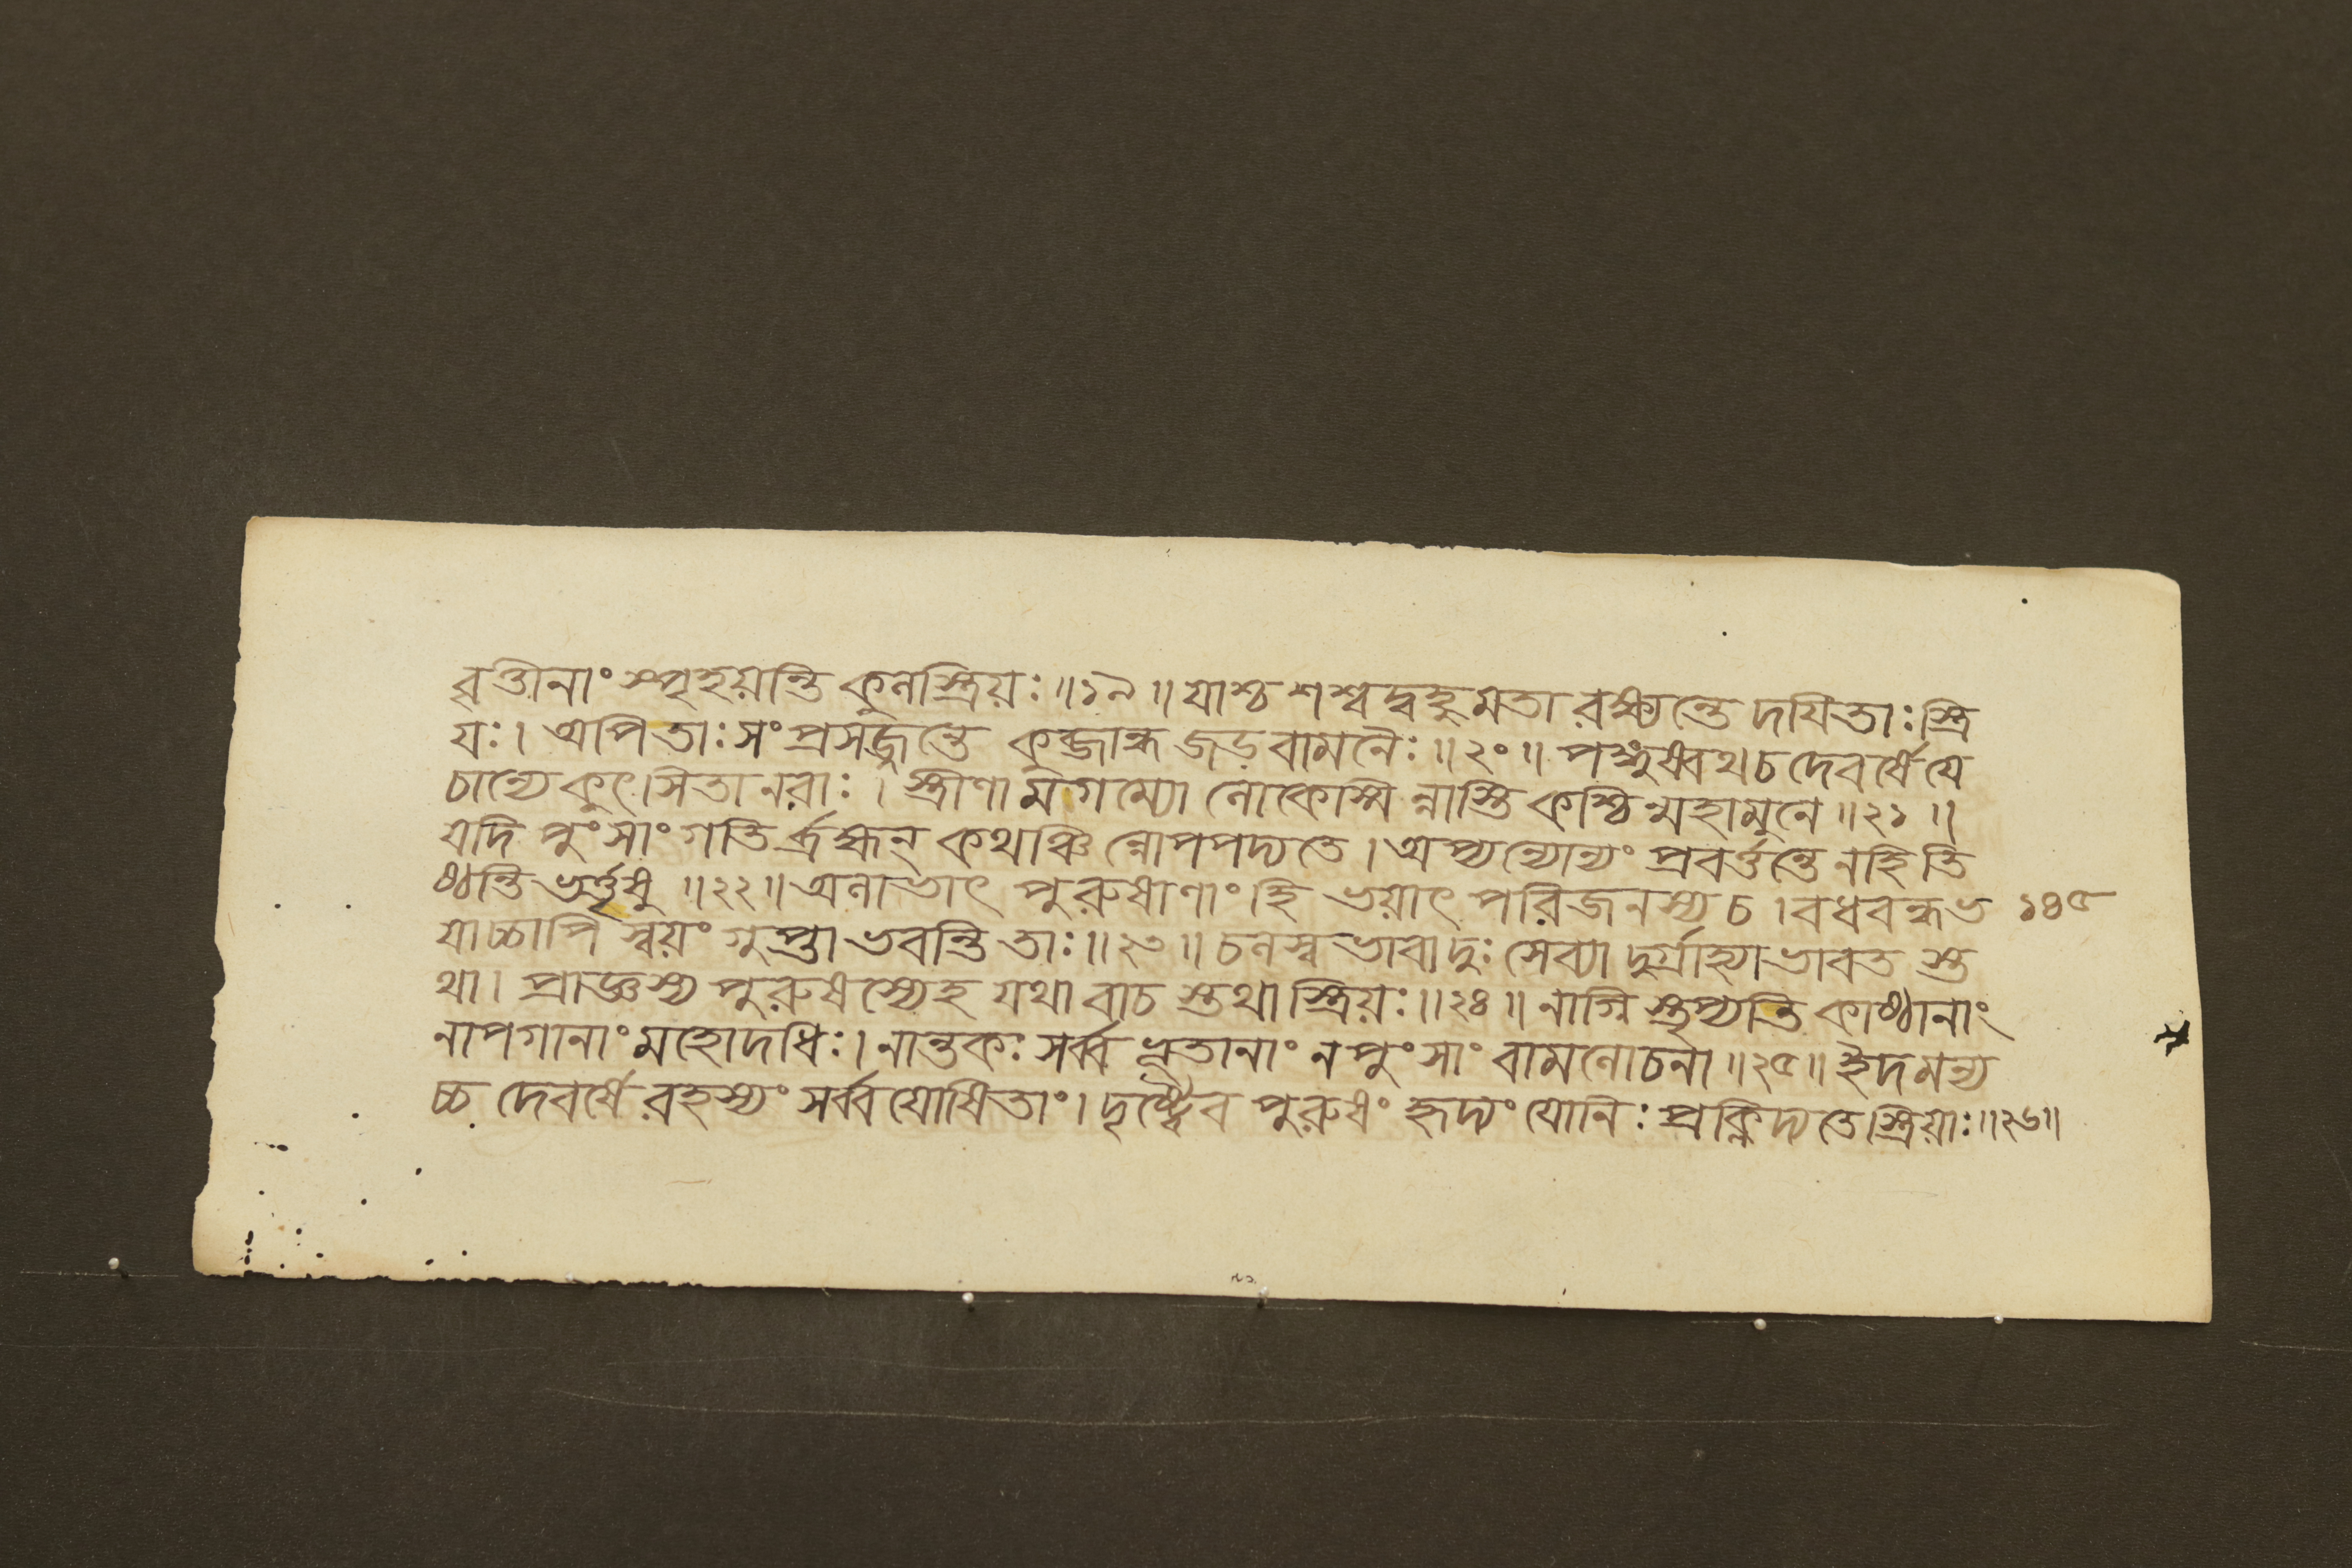 বৃত্তীনাং স্পৃহয়ন্তি কুলস্ত্রিয়ঃ॥১৯॥ যাশ্চ শশ্বদ্বহুমতা রক্ষ্যন্তে দয়িতাঃ স্ত্রি
যঃ। অপি তাঃ সংপ্রসজ্জন্তে কুব্জান্ধ জড়বামনৈঃ॥২০॥ পঙ্গুষ্বথ চ দেবর্ষে যে
চান্যে কুৎসিতা নরাঃ। স্ত্রীণামগম্যো লোকেস্মিন্নাস্তি কশ্চিন্মহামুনে॥২১॥
যদি পুংসাং গতির্ব্রহ্মন্ কথঞ্চিন্নোপপদ্যতে। অপ্যন্যোন্যং প্রবর্ত্তন্তে নহি তি
ষ্ঠন্তি ভর্ত্তৃষু॥২২॥ অলাভাৎ পুরুষাণাং হি ভয়াৎ পরিজনস্য চ। বধবন্ধভ ১৪৫
যাচ্চাপি স্বয়ং গুপ্তা ভবন্তি তাঃ॥২৩॥ চলস্বভাবা দুঃসেব্যা দুর্গ্রাহ্যা ভাবতস্ত
থা। প্রাজ্ঞস্য পুরুষস্যেহ যথা বাচস্তথা স্ত্রিয়ঃ॥২৪॥ নাগ্নিস্তৃপ্যতি কাষ্ঠানাং
নাপগানাং মহোদধিঃ। নান্তকঃ সর্ব্বভূতানাং ন পুংসাং বামলোচনা॥২৫॥ ইদমন্য
চ্চ দেবর্ষে রহস্যং সর্ব্বযোষিতাং। দৃষ্ট্বৈব পুরুষং হৃদ্যং যোনিঃ প্রক্লিদ্যতে স্ত্রিয়াঃ॥২৬॥